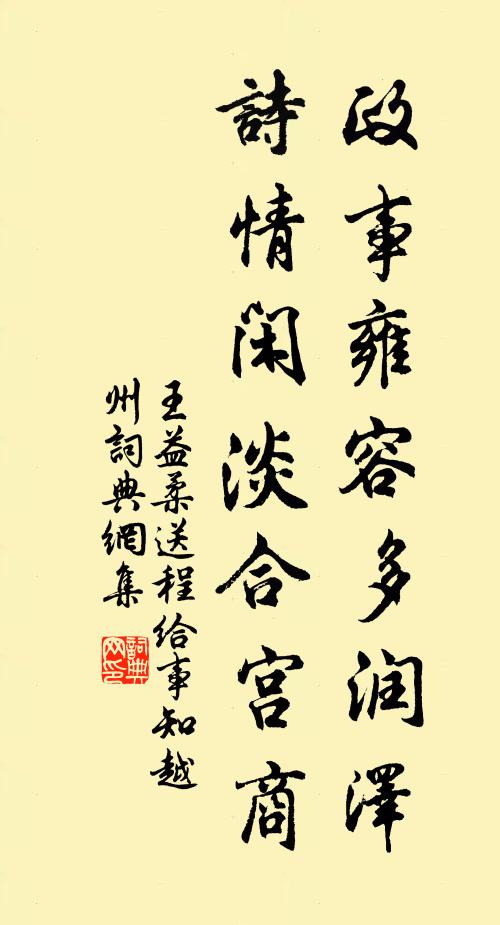 政事雍容多润澤
詩情闲淡合宫商
王益柔送程給事知越
州詞典網集
詞典网印